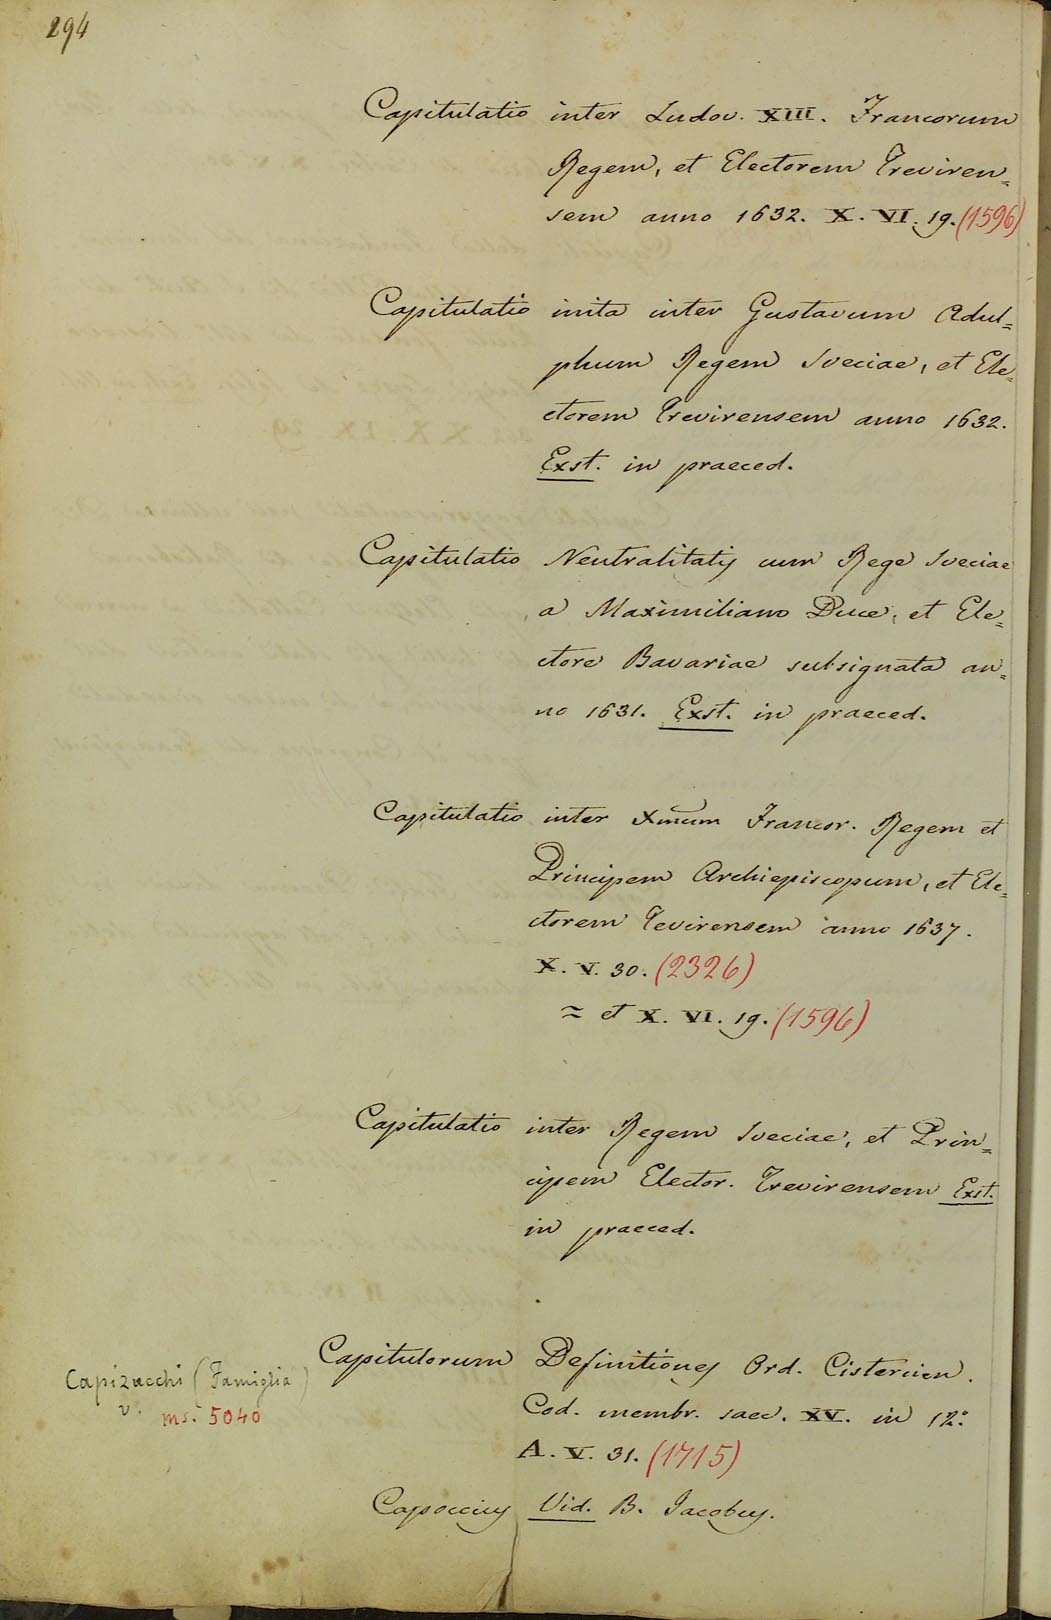 294
Capitulatio inter Ludov. XIII. Francorum
Regem, et Electorem Treviren=
sem anno 1632. X. VI. 19. (1596)
Capitulatio inita inter Gustavum Adul=
phum Regem Sveciae, et Ele=
ctorem Trevirensem anno 1632.
Exst. in praeced.
Capitulatio Neutralitatis cum Rege Sveciae
a Maximiliano Duce, et Ele=
ctore Bavariae subsignata an=
no 1631. Exst. in praeced.
Capitulatio inter Xmum Francor. Regem et
Principem Archiepiscopum, et Ele=
ctorem Tevirensem anno 1637.
X. V. 30. (2326)
≈ et X. VI. 19. (1596)
Capitulatio inter Regem Sveciae, et Prin=
cipem Elector. Trevirensem Exst.
in praeced.
Capitulorum Definitiones Ord. Cistercien.
Cod. membr. saec. XV. in 12.°
A. V. 31. (1715)
Capizucchi (Famiglia)
v. ms. 5040
Capoccius Vid. B. Jacobus.